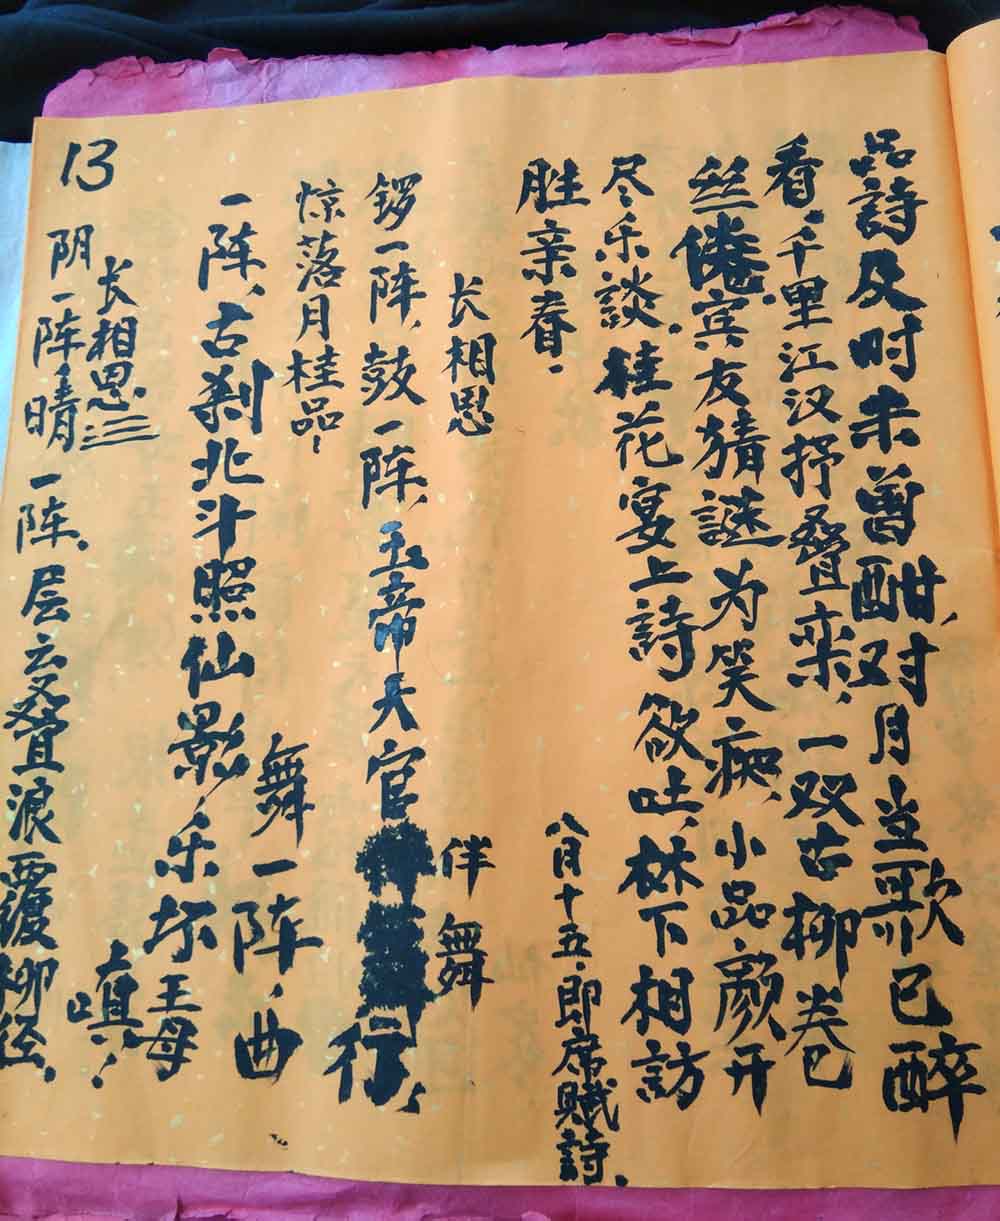 品詩及时未曾酣，对月当歌已醉
看，千里江汉抒叠峦，一双古柳卷巳
丝倦，宾友猜谜为笑痴，小品颜开
尽乐談，桂花宴上詩欲吐，林下相訪
胜亲眷。
八月十五、即席赋詩．
长相思
伴舞
锣一阵，鼓一阵，玉帝天官
行，
惊落月桂品，
舞一阵，曲
一阵，古刹北斗照仙影，乐坏王母
嗔！
13
长相思三
阴一阵，晴一阵，层云叠浪覆柳